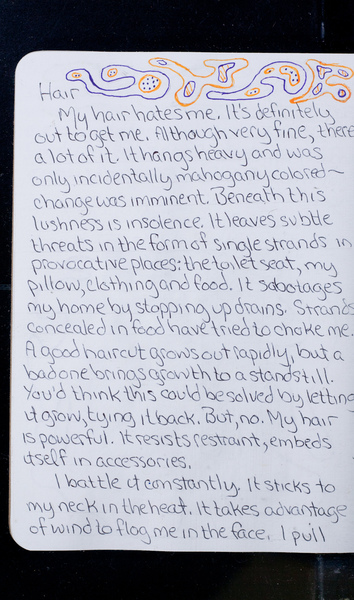 Hair
My hair hates me. It's definitely
out to get me. Although very fine, there
a lot of it. It hangs heavy and was
only incidentally mahogany colored~
change was imminent. Beneath this
lushness is insolence. It leaves subtle
threats in the form of single strands in
provocative places: the toilet seat, my
pillow, clothing and food. It sabotages
my home by stopping up drains. Strands
concealed in food have tried to choke me.
A good haircut grows out rapidly, but a
bad one brings growth to a standstill.
You'd think this could be solved by letting
it grow, tying it back. But, no. My hair
is powerful. It resists restraint, embeds
itself in accessories.
I battle it constantly. It sticks to
my neck in the heat. It takes advantage
of wind to flog me in the face. I pull